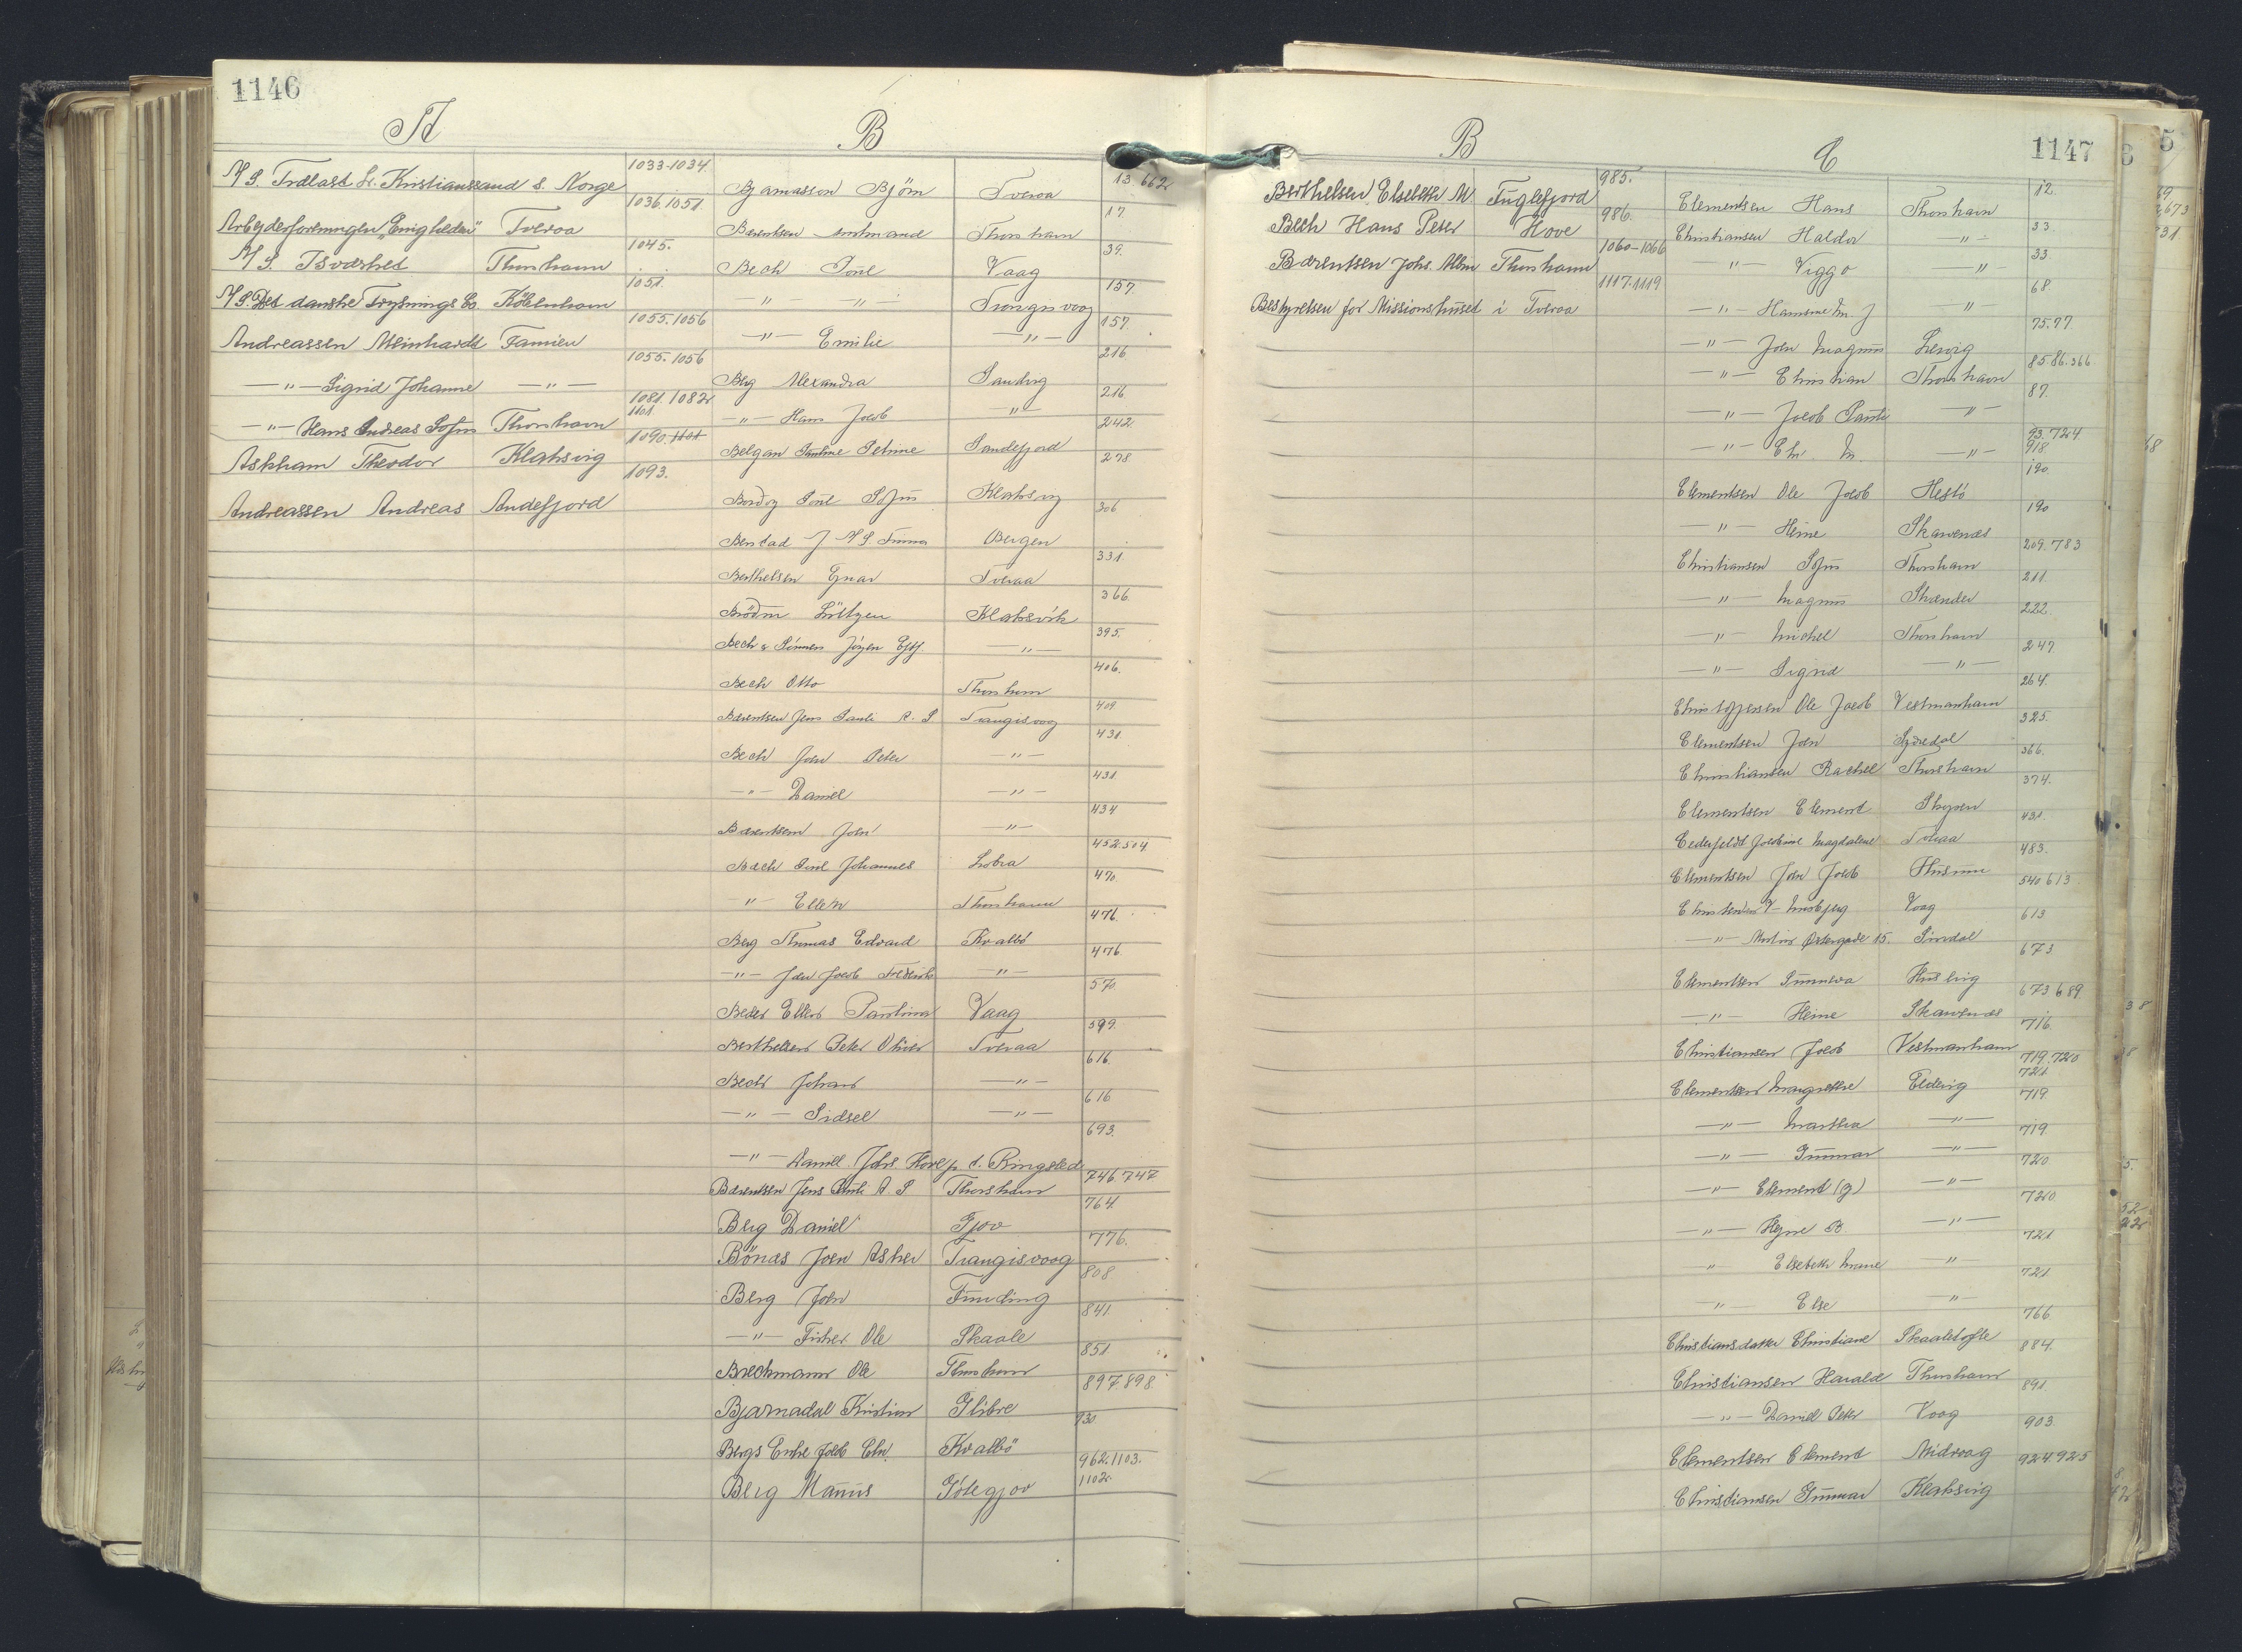 1146
A
A/S. Trælast Co. Kristianssand S. Norge 1033-1034
Arbejderforeningen "Enigheden" Tveraa 1036.1051
A/S. Tsværhed Thorshavn 1045.
A/S. Det danske Frysnings Co. København 1051.
Andreassen Meinhardt Famien 1055.1056
—"— Sigrid Johanne —"— 1055.1056
—"— Hans Andreas Sofus Thorshavn 1081.1082 1101
Askham Theodor Klaksvig 1090.1101
Andreassen Andreas Andefjord 1093.
B
Bjarnasson Björn Tveraa 13 662
Bærentsen Amtmand Thorshavn 17.
Bech Poul Vaag 39.
—"— —"— Trongisvaag 157.
—"— Emilie —"— 157.
Berg Alexandra Sandvig 216
—"— Hans Jacob —"— 216
Belgan Pauline Petrine Sandefjord 242
Bordoy Poul Sofus Klaksvig 278
Berstad J A/S. Bergen 306
Berthelsen Ejnar Tveraa 331
Brödr. Lützen Klaksvik 366.
Bech & Jógen —"— 395.
Bech Otto Thorshavn 406.
Bærentsen Jens Pauli R. S Trangisvaag 409
Bech Joen Peter —"— 431
—"— Daniel —"— 431
Bærentsen Joen —"— 434
Bech Poul Johannes Lobra 452.504
—"— Ellen Thorshavn 470.
Berg Thomas Edvard Kvalbö 476.
—"— Joen Jacob Frederik —"— 476.
Beder Ellen Paulina Vaag 570.
Berthelsen Peter Oliver Tveraa 599.
Bech Johan —"— 616.
—"— Sidsel —"— 616
—"— Daniel. Johs Hove p. t. Ringsted 693.
Bærentsen Jens Pauli R. S Thorshavn 746.747
Berg Daniel Gjov 764.
Bönæs Joen Asker Trangisvaag 776.
Berg Joen Funding 808
—"— Fisker Ole Skaale 841.
Brechmann Ole Thorshavn 851
Bjarnadal Kristian Glibre 897 898
Bergs Enke Jacob Chr. Kvalbö 930
Berg Manus Götegjov 962.1103. 1102.
1147
B
Berthelsen, Elsebeth M. Fuglefjord 985.
Bech Hans Peter Hove 986.
Bærentsen Johs. Thorshavn 1060-1066
Bestyrelsen for Missionshuset i Tveraa 1117.1119
C
Clementsen Hans Thorshavn 12.
Christiansen Haldor —"— 33
—"— Viggo —"— 33
—"— Hansine M. J —"— 68
—"— Joen Magnus Lervig 75.77.
—"— Christian Thorshavn 85 86.366
—"— Jacob Pauli —"— 87.
—"— Chr. M. —"— 93.724. 918.
Clementsen Ole Jacob Hestö 190.
—"— Heine Skaavenæs 190
Christiansen Sofus Thorshavn 209.783
—"— Magnus Skander 211.
—"— Michel Thorshavn 222.
—"— Sigrid —"— 247.
Christoffersen Ole Jacob Vestmanhavn 264.
Clementsen Joen Syderdal 325.
Christiansen Rachel Thorshavn 366.
Clementsen Clement Skopen 374.
Cederfeldt Jacobine Magdalene Tveraa 431
Clementsen Joen Jacob Husum 483.
Christensen Vaag 540 613
—"— Martin Østergade 15. Sindal 613
Clementsen Sunneva Husevig 673
—"— Heine Skaavenæs 673 689
Christiansen Jacob Vestmanhavn 716
Clementsen Margrethe Eldevig 719.720 721
—"— Martha —"— 719
—"— Gunnar —"— 719
—"— Clement (g) —"— 720
—"— Hejne B. —"— 720
" Elsebeth Marie —"— 721
—"— Else —"— 721
Christiansdatter Christiane Skaaletofte 766
Christiansen Harald Thorshavn 884.
—"— Daniel Peter Vaag 891
Clementsen Clement Midvaag 903.
Christiansen Gunnar Klaksvig 924.925